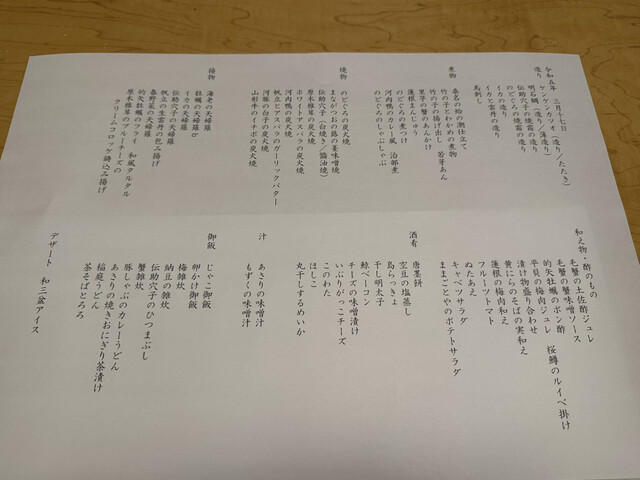 令和五年　三月十七日
造り
ケンケンカツオ（造り／たたき）
明石鯛（造り／薄造り）
伝助穴子の焼霜の造り
のどぐろの焼霜の造り
イカの造り
イカと雲丹の造り
馬刺し
煮物
桑名の蛤の潮仕立て
竹の子とわかめの煮物
竹の子の揚げ出し　若芽あん
里芋の蟹のあんかけ
蓮根まんじゅう
のどぐろの煮つけ
河内鴨のカレー風　治部煮
のどぐろのしゃぶしゃぶ
焼物
のどぐろの炭火焼
まながつおの蕗の薹味噌焼
伝助穴子（白焼き／醤油焼）
原木椎茸の炭火焼
ホワイトアスパラの炭火焼
帆立とアスパラのガーリックバター
河内鴨の炭火焼
河豚の白子の炭火焼
山形牛のイチボの炭火焼
揚物
海老の天婦羅
牡蠣の天婦羅
イカの天婦羅
伝助穴子の天婦羅
帆立の生雲丹の包み揚げ
春野菜の天婦羅
的矢牡蠣のフライ　和風タルタル
原木椎茸のブルーチーズの
クリームコロッケ鋳込み揚げ
和え物・酢のもの
毛蟹の土佐酢ジュレ
毛蟹の蟹味噌ソース
的矢牡蠣のポン酢
平貝の梅肉ジュレ　桜鱒のルイベ掛け
漬け物盛り合わせ
黄にらのそばの実和え
蓮根の梅肉和え
フルーツトマト
ぬたあえ
キャベツサラダ
ままごとやのポテトサラダ
酒肴
唐墨餅
空豆の塩蒸し
島らっきょ
干し明太子
鯨ベーコン
チーズの味噌漬け
いぶりがっこチーズ
このわた
ほしこ
丸干しするめいか
汁
あさりの味噌汁
もずくの味噌汁
御飯
じゃこ御飯
卵かけ御飯
梅雑炊
納豆の雑炊
伝助穴子のひつまぶし
蟹雑炊
豚しゃぶのカレーうどん
あさりの焼きおにぎり茶漬け
稲庭うどん
茶そばとろろ
デザート　和三盆アイス